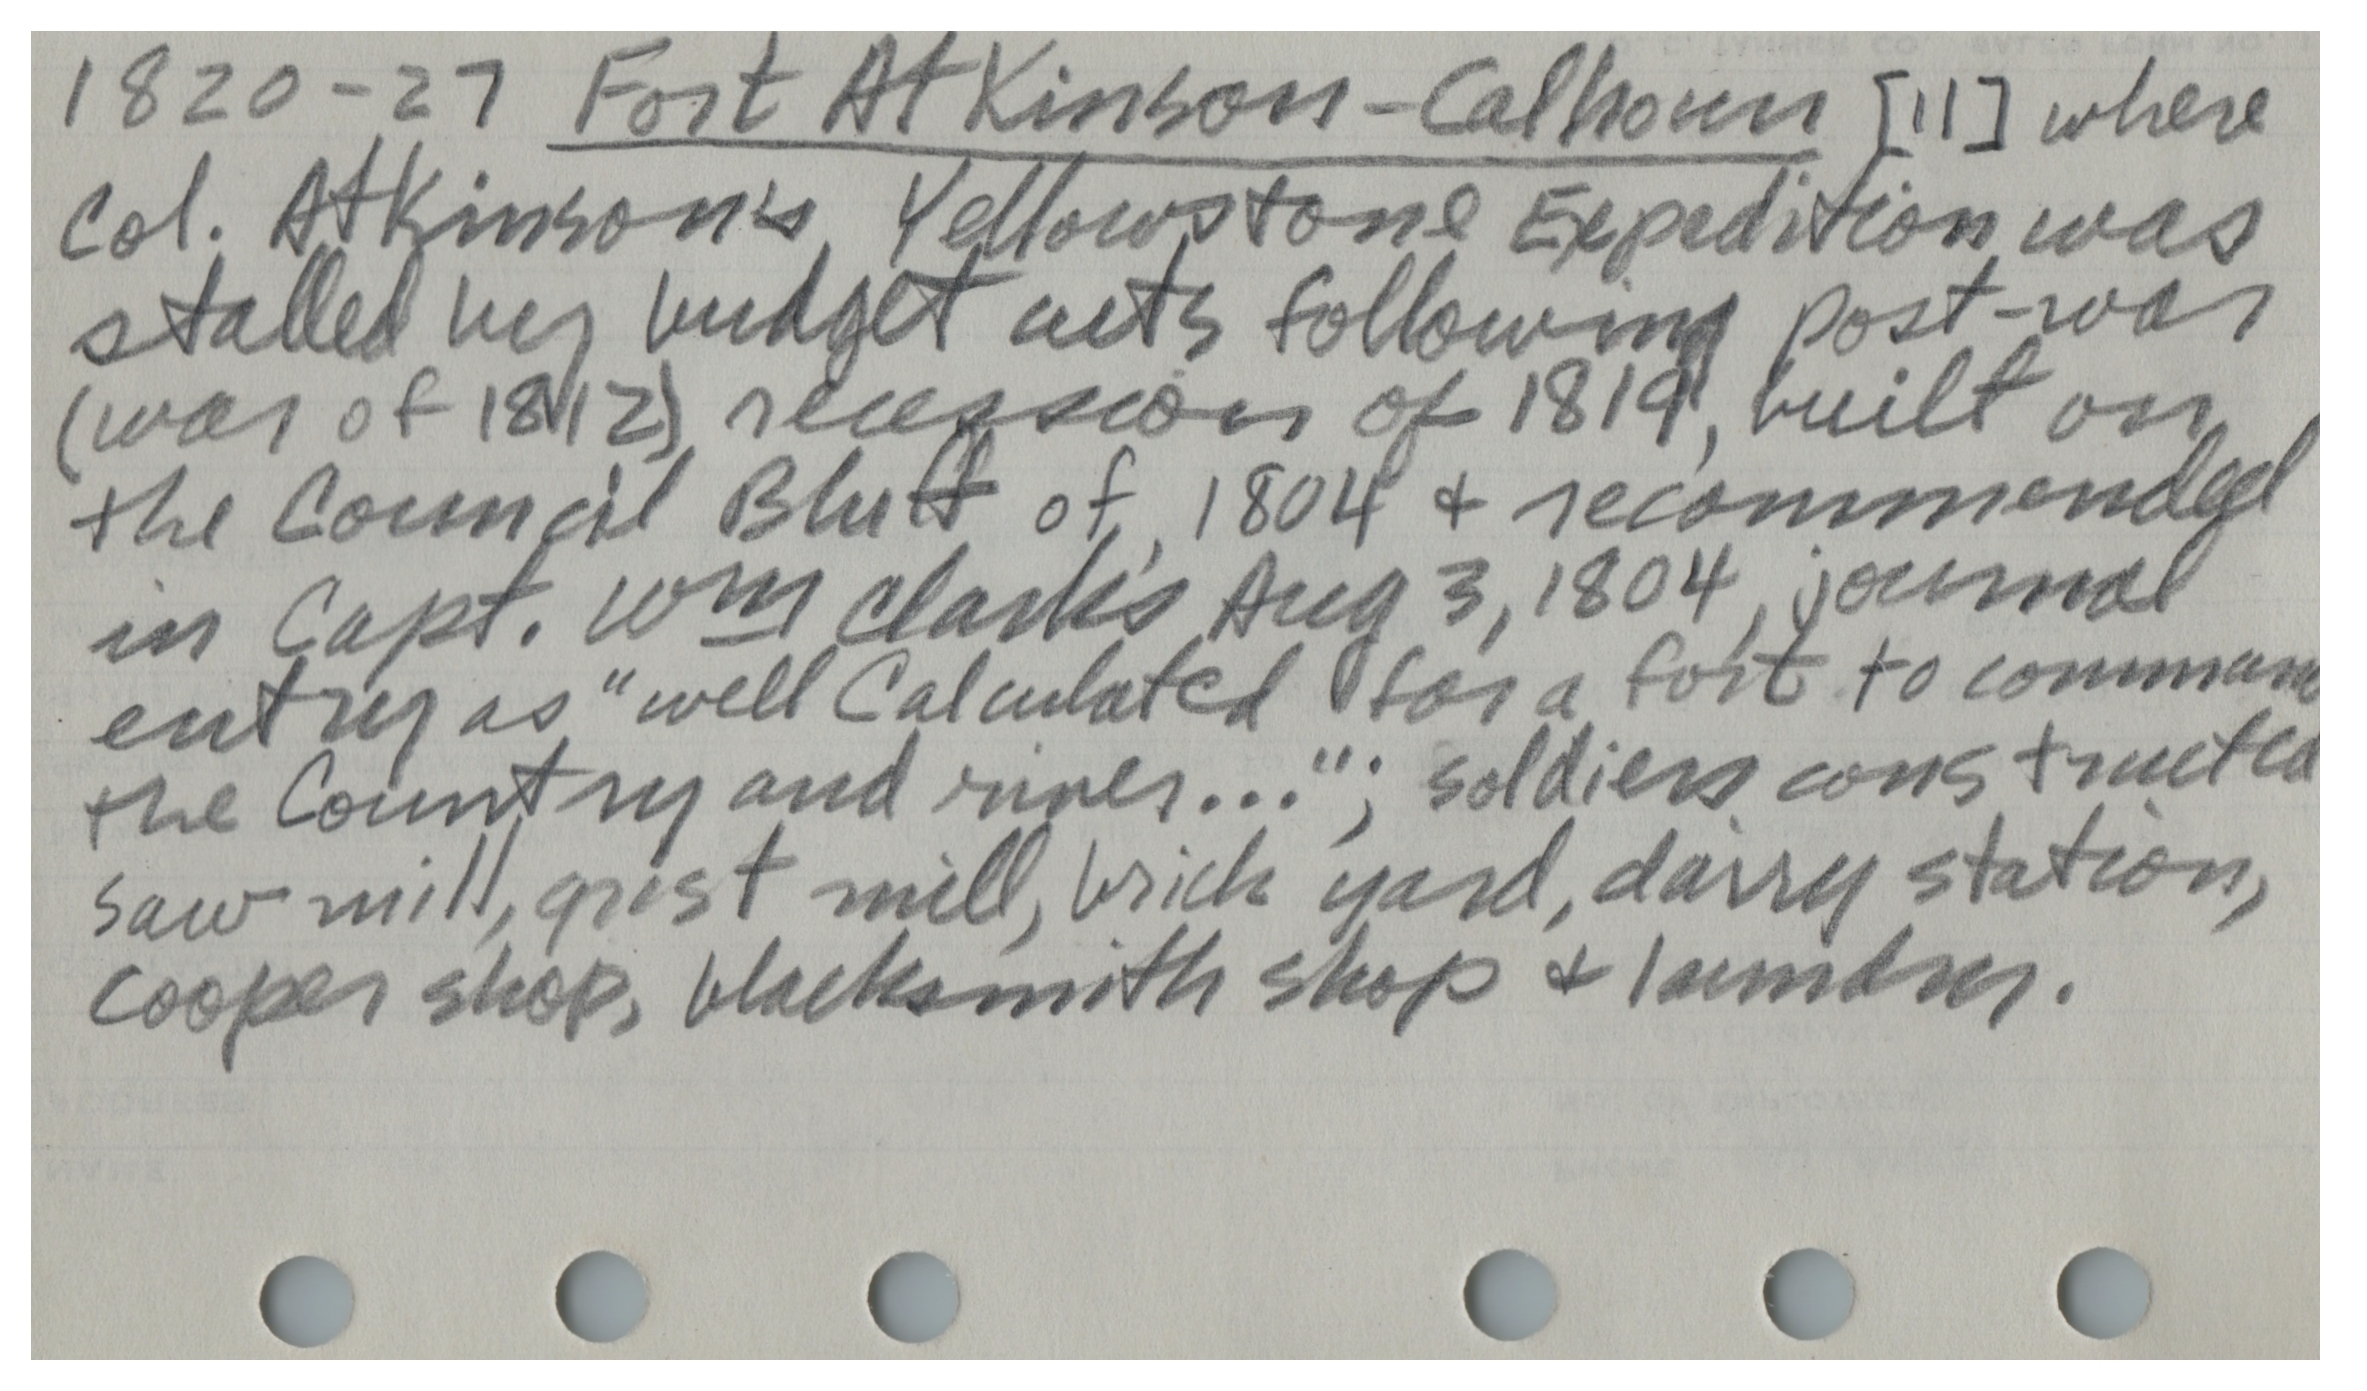 1820-27 Fort Atkinson-Calhoun [11] where
Col. Atkinson's Yellowstone Expedition was
stalled by budget cuts following post-war
(war of 1812) recession of 1819, built on
the Council Bluff of 1804 & recommended
in Capt. Wm Clark's Aug 3, 1804, journal
entry as "well Calculated for a fort to command
the Country and river..."; soldiers constructed
saw mill, grist mill, brick yard, dairy station,
cooper shop, blacksmith shop & laundry.